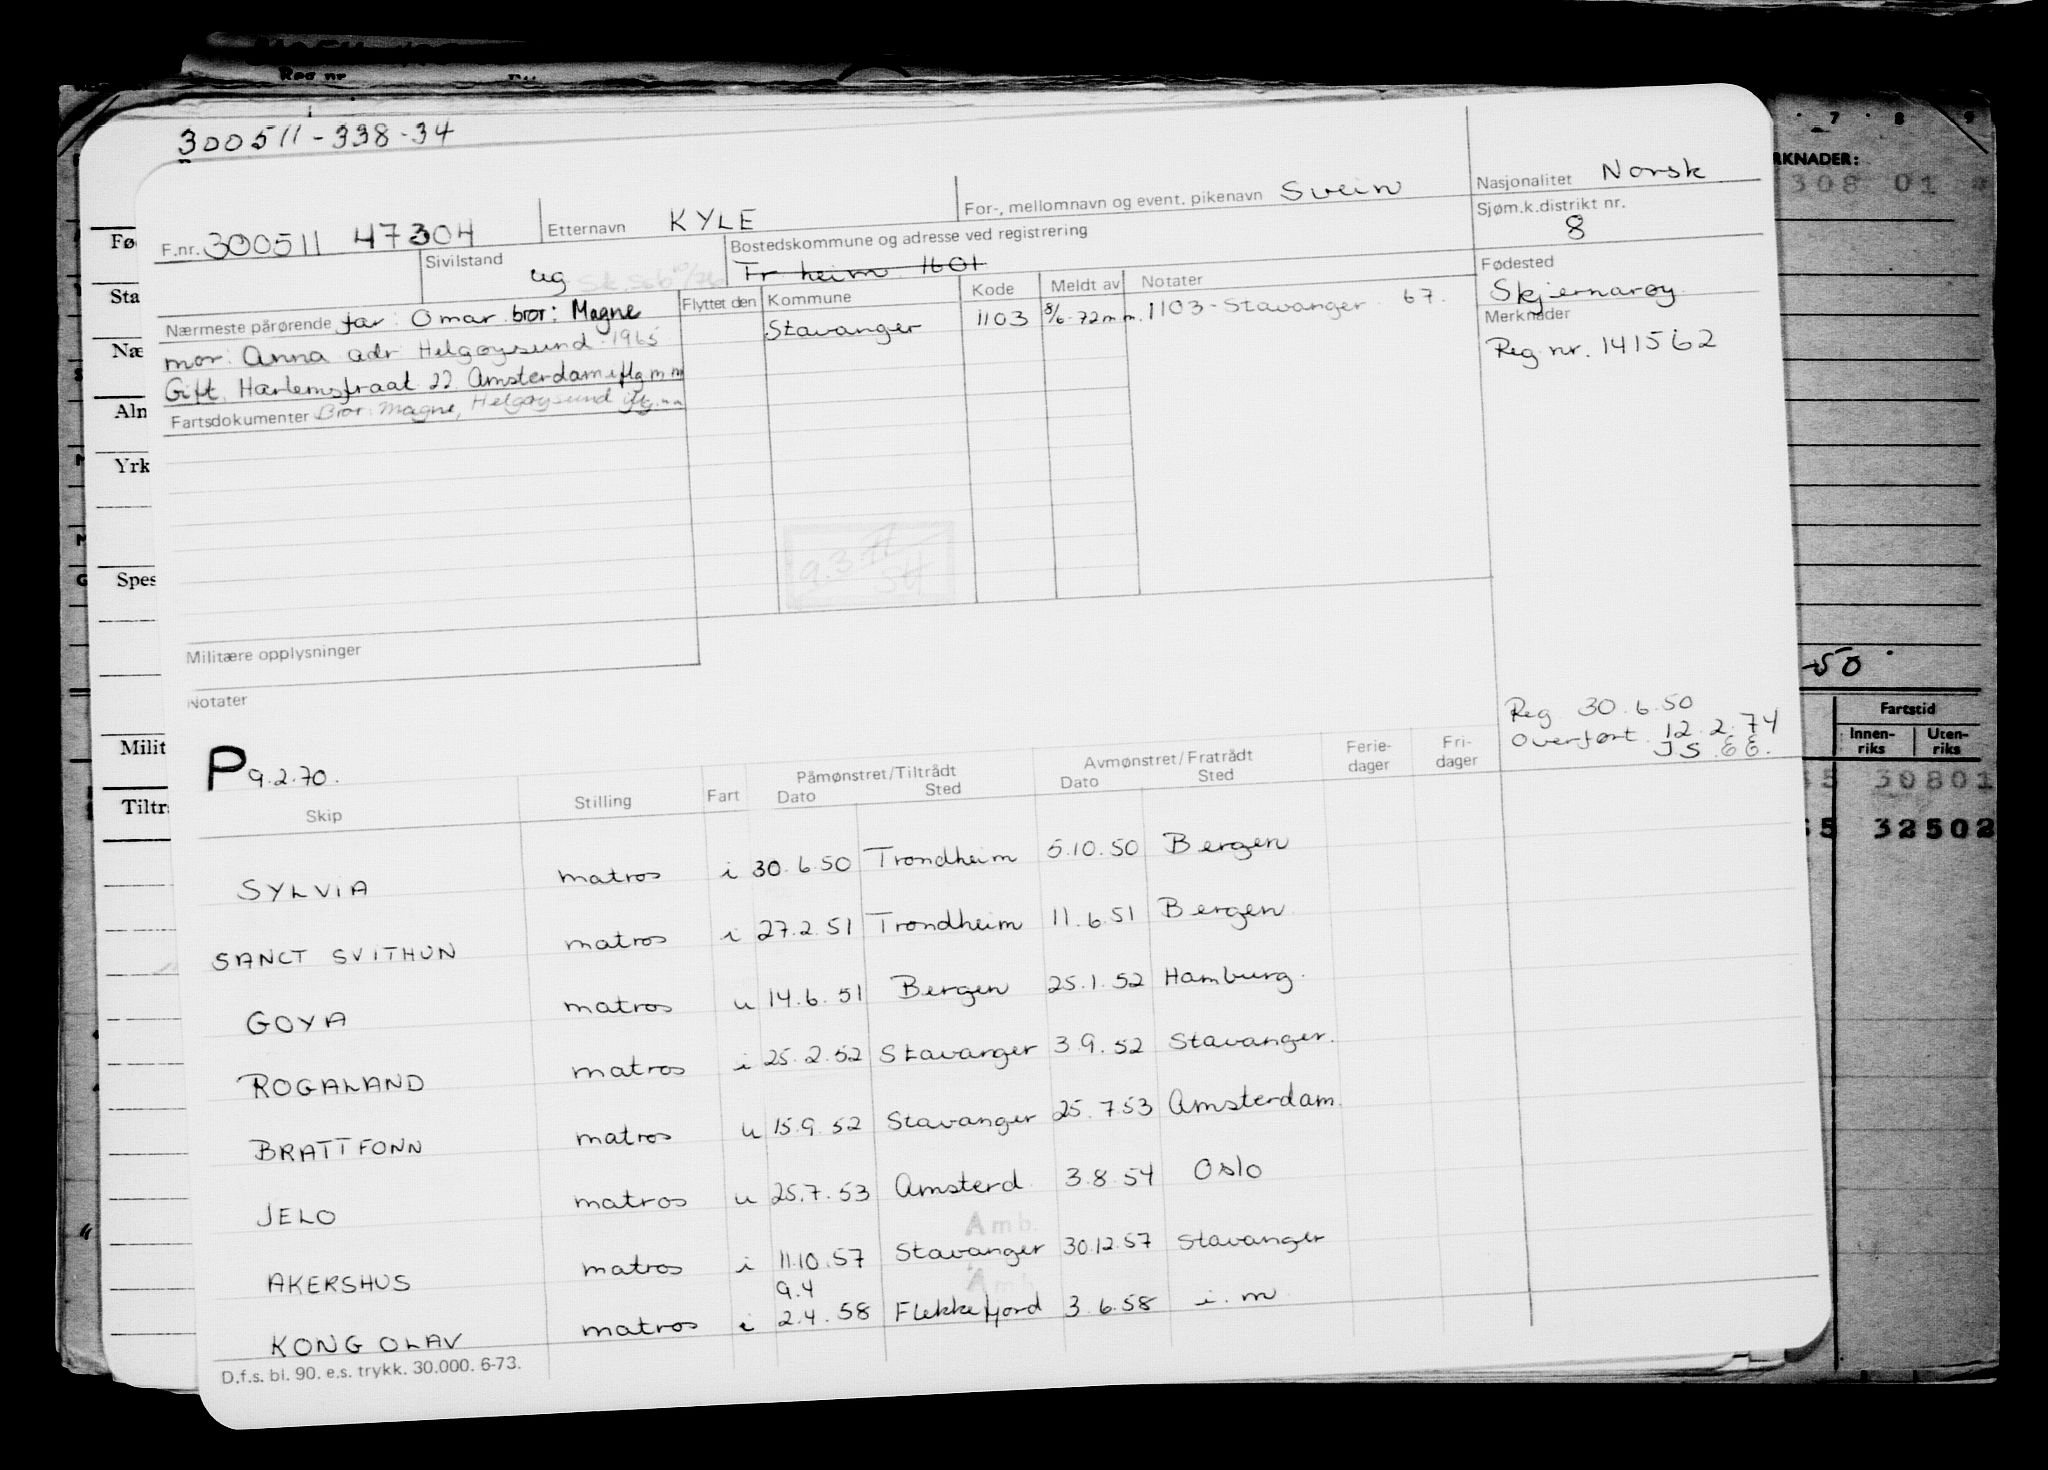 Reg nr
7 8 9
RKNADER:
308 01
300511-338-34
F.nr. 300511 47304
Etternavn KYLE
For-, mellomnavn og event. pikenavn Svein
Nasjonalitet Norsk
Sjøm.k.distrikt nr.
8
Sivilstand
ug
Bostedskommune og adresse ved registrering
Tr heim 1601
Fødested
Skjernarøy
Nærmeste pårørende far: Omar bror: Magne
mor: Anna adr Helgøysund 1965
Gift. Harlemstraat 22 Amsterdam iflg m m
Flyttet den Kommune Kode Meldt av Notater
Stavanger 1103 8/6-72 m m. 1103-Stavanger 67.
Merknader
Reg nr. 141562
Fartsdokumenter Bror: Magne, Helgøysund iflg. m m
Militære opplysninger
Notater
Fø
Sta
Næ
Aln
Yrk
Spes
Milit
Tiltr
-50
Reg 30.6.50
Overført 12.2.74
JS. EE.
Fartstid
Innen-riks Uten-riks
55 30801
55 32502
P 9.2.70.
Skip Stilling Fart Påmønstret/Tiltrådt Dato Sted Avmønstret/Fratrådt Dato Sted Ferie-dager Fri-dager
SYLVIA matros i 30.6.50 Trondheim 5.10.50 Bergen
SANCT SVITHUN matros i 27.2.51 Trondheim 11.6.51 Bergen
GOYA matros u 14.6.51 Bergen 25.1.52 Hamburg.
ROGALAND matros i 25.2.52 Stavanger 3.9.52 Stavanger.
BRATTFONN matros u 15.9.52 Stavanger 25.7.53 Amsterdam.
JELO matros u 25.7.53 Amsterd. 3.8.54 Oslo
Amb.
AKERSHUS matros i 11.10.57 Stavanger 30.12.57 Stavanger
9.4 Amb
KONG OLAV matros i 2.4.58 Flekkefjord 3.6.58 i. m
D.f.s. bl. 90. e.s. trykk. 30.000. 6-73.